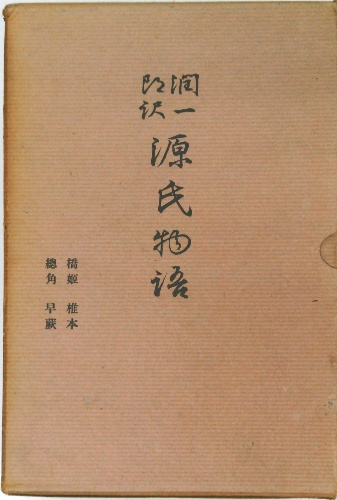 潤一
郎訳
源氏物語
橋姫 椎本
總角 早蕨